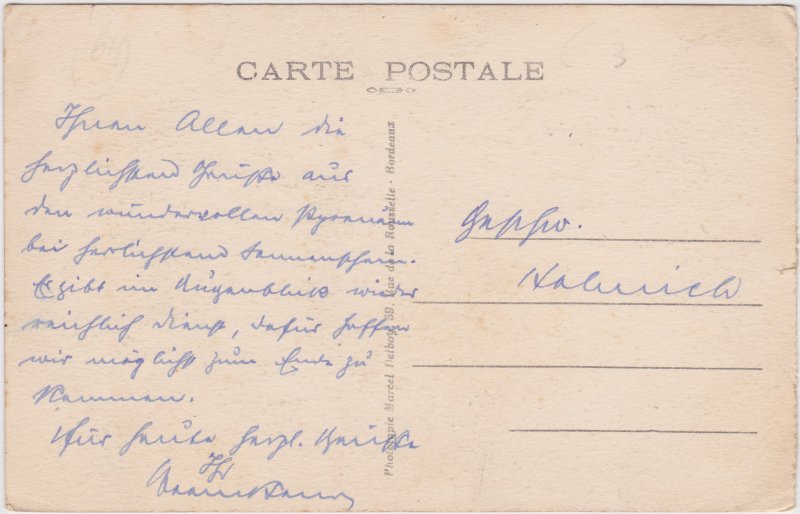 (64)
3
CARTE POSTALE
Ihnen Allen die
herzlichsten Grüße aus
den wundervollen Pyrenäen
bei herrlichstem Sonnenschein.
Es gibt im Augenblick wieder
reichlich Dienst, dafür hoffen
wir möglichst zum Ende zu
kommen.
Für heute herzl. Grüße
Ihr
Geschw.
Phototypie Marcel Delboy, 59, Rue de la Rousselle - Bordeaux